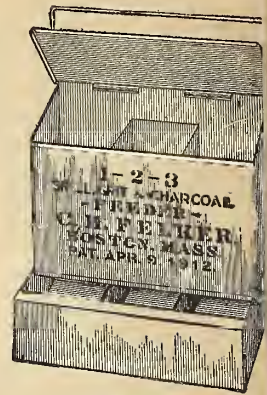 1-2-3
CHARCOAL
FEEDER
FELKER
BOSTON, MASS.
PAT. APR. 9 1912